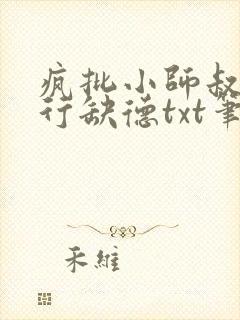 疯批小师叔
行缺德txt笔
禾维